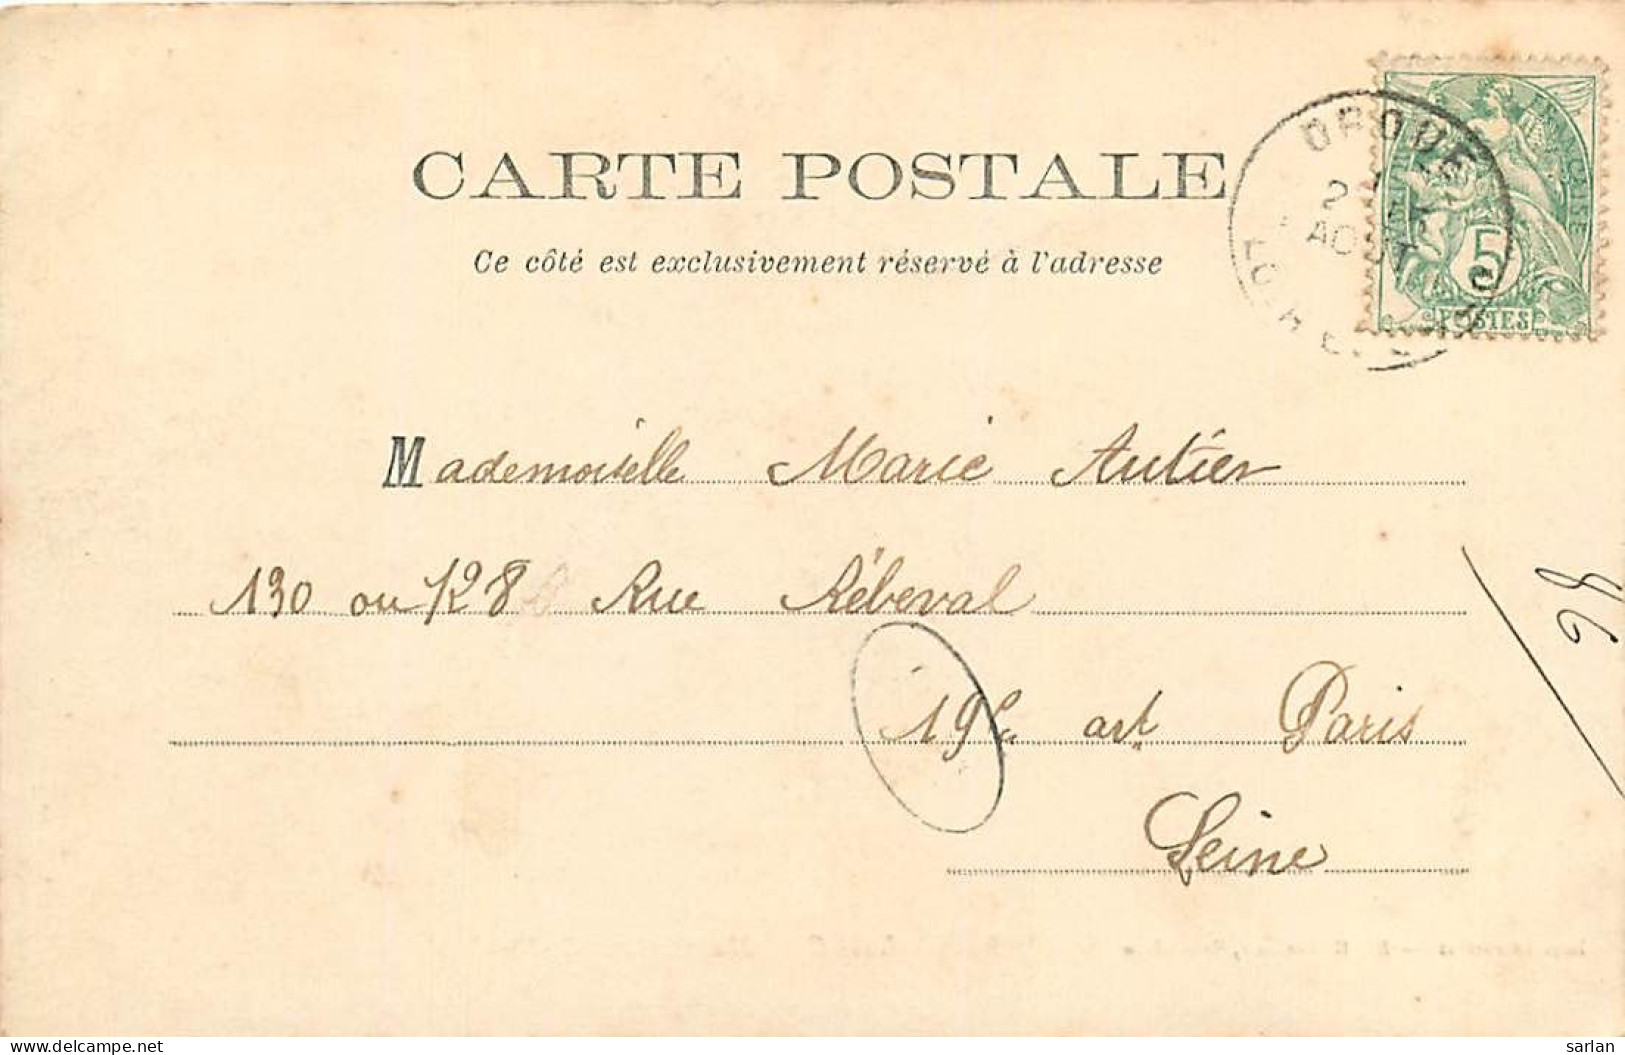 CARTE POSTALE
Ce côté est exclusivement réservé à l'adresse
2
AOUT
5
POSTES
Mademoiselle Marie Autier
130 ou 128 Rue Rébeval
19e art Paris
Seine
delcampe.net
sarlan